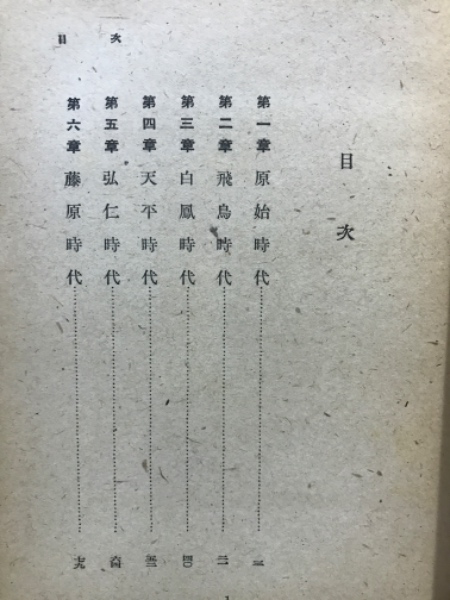 目次
目次
第一章 原始時代
第二章 飛鳥時代
第三章 白鳳時代……四〇
第四章 天平時代
第五章 弘仁時代……六四
第六章 藤原時代……七九
1